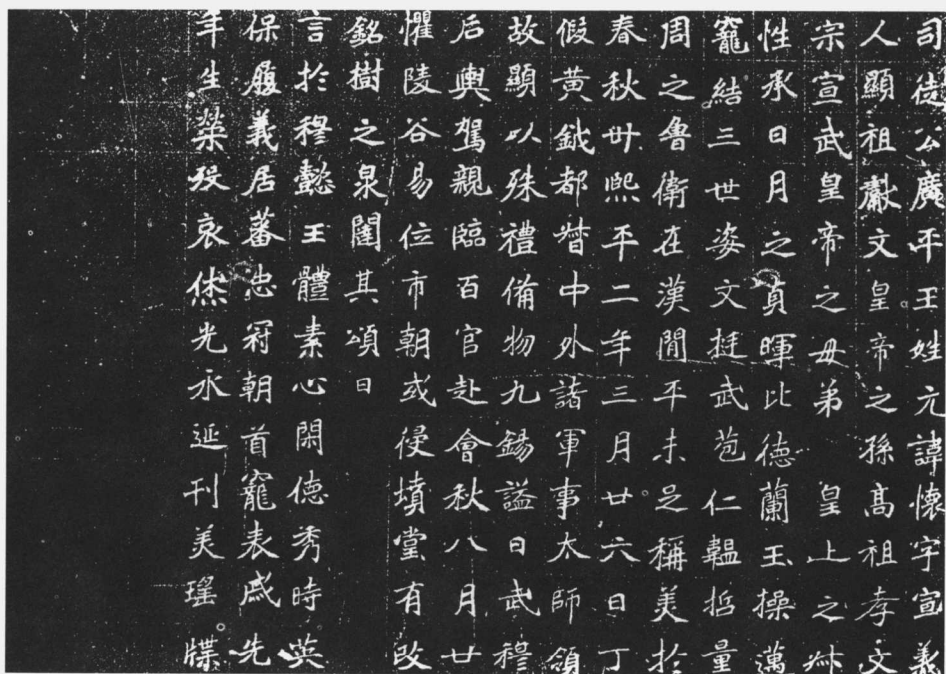 司徒公廣平王姓元諱懷字宣義
人顯祖獻文皇帝之孫高祖孝文
宗宣武皇帝之母弟皇上之叔
性承日月之貞暉比德蘭玉操邁
寵結三世姿文挺武苞仁韞哲量
周之魯衛在漢閒平未足稱美於
春秋卅熙平二年三月廿六日丁
假黃鉞都督中外諸軍事太師領
故顯以殊禮備物九錫謚曰武穆
后輿駕親臨百官赴會秋八月廿
懼陵谷易位市朝或侵墳堂有改
銘樹之泉闥其頌曰
言於穆懿王體素心閑德秀時英
保履義居蕃忠冠朝首寵表戚先
年生榮歿哀休光永延刊美瑤牒